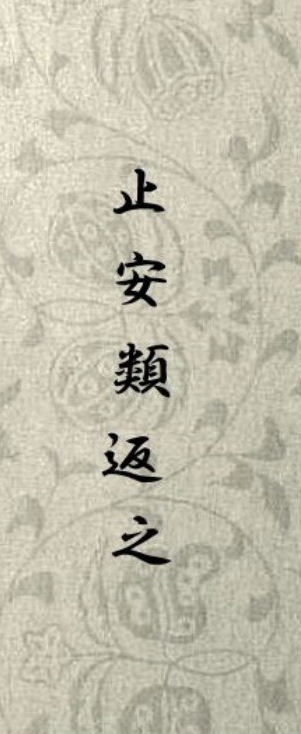 止安類返之